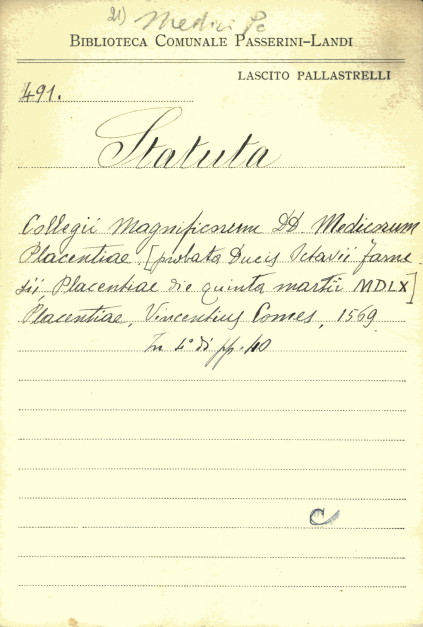 21) Medici Pc
BIBLIOTECA COMUNALE PASSERINI-LANDI
LASCITO PALLASTRELLI
491.
Statuta
Collegii Magnificorum DD. Medicorum
Placentiae [probata Ducis Octavii Farne
sii, Placentiae die quinta martii MDLX]
Placentiae, Vincentius Comes, 1569
In 4° di pp. 40
C